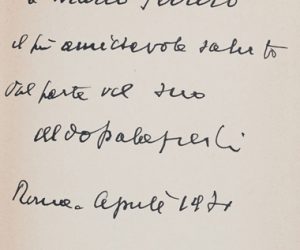 a
il più amichevole saluto
dal parte del suo
aldopalazzeschi
Roma. Aprile 1971